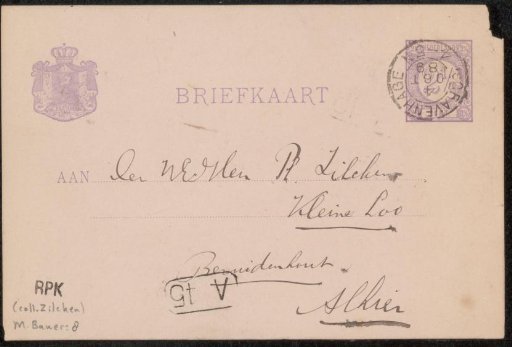 BRIEFKAART
'S GRAVENHAGE
AAN Den WEdHen Ph Zilcken
Kleine Loo
Bezuidenhout
A 15
Alhier
RPK
(coll. Zilcken)
M. Bauer: 8